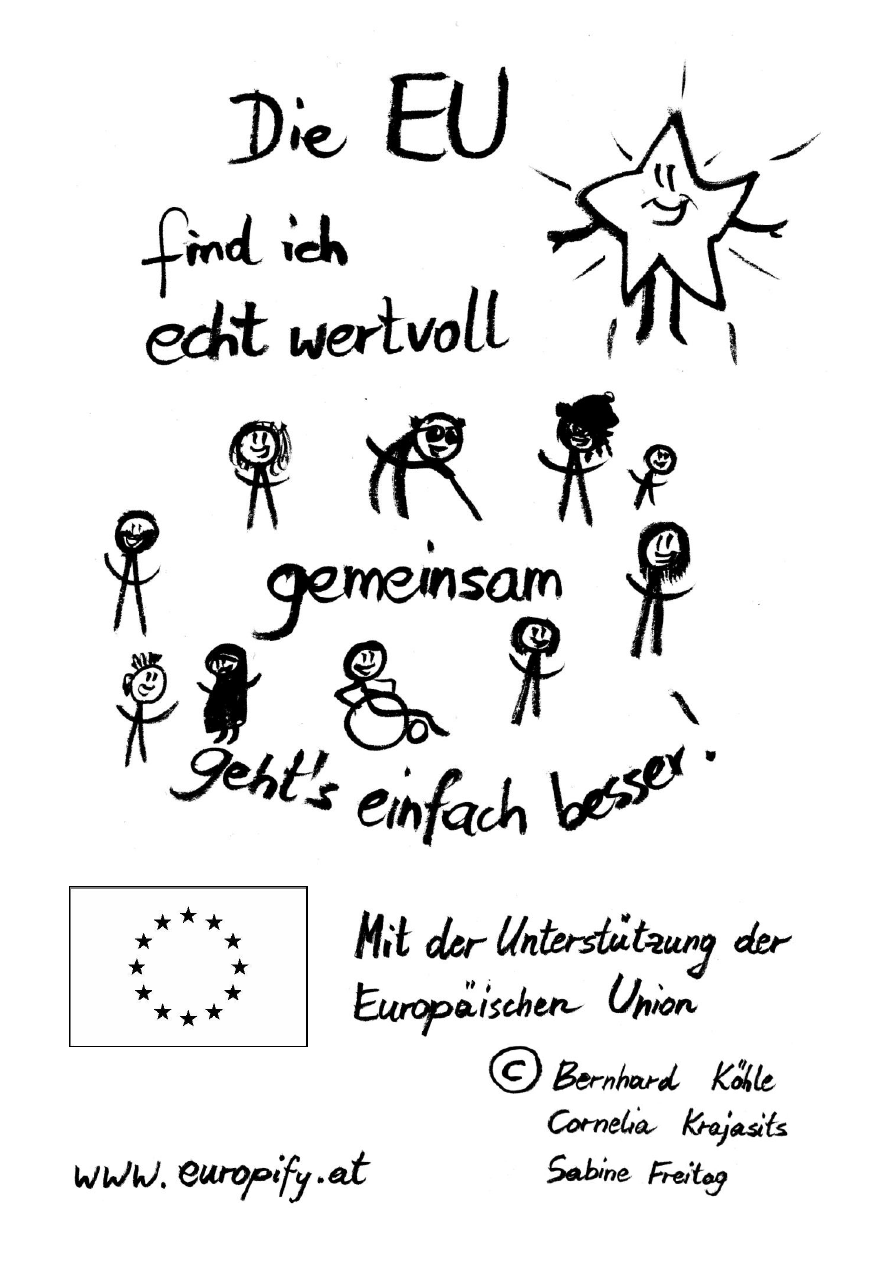 Die EU
find ich
echt wertvoll
gemeinsam
geht's einfach besser.
Mit der Unterstützung der
Europäischen Union
© Bernhard Köhle
Cornelia Krajasits
Sabine Freitag
www.europify.at